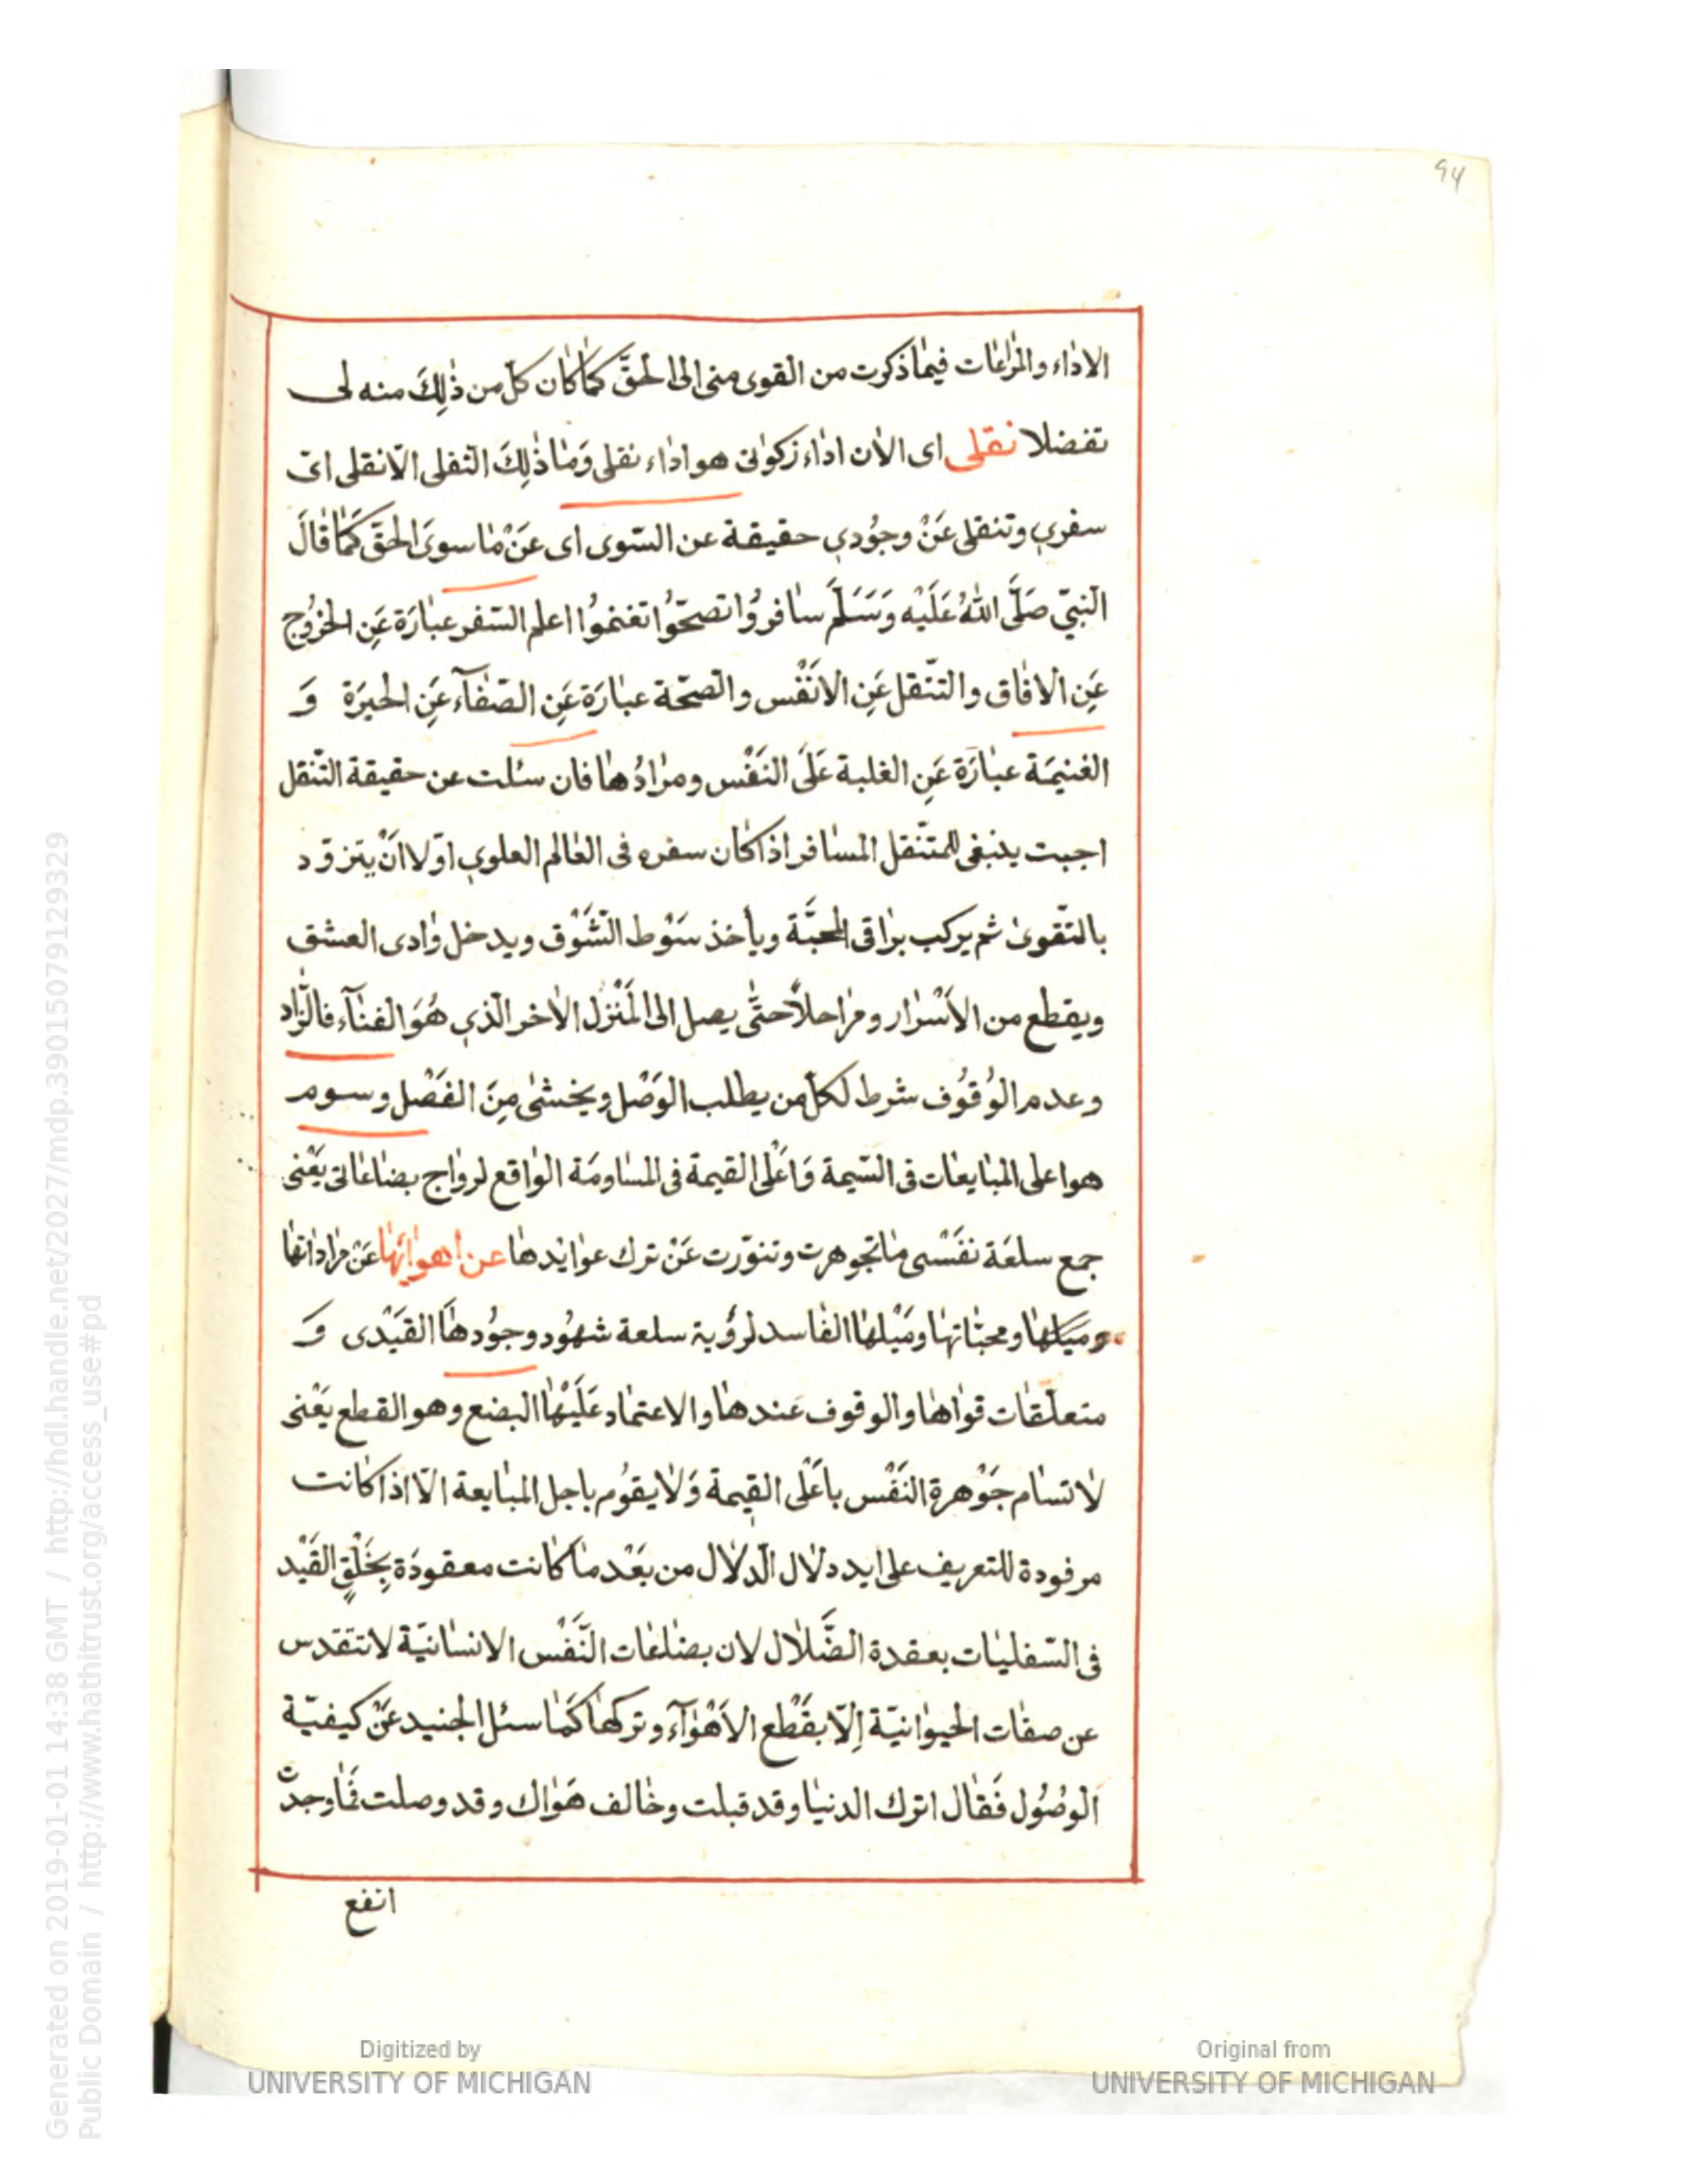 94
الاداء والمراعات فيما ذكرت من القوى منى الى الحقّ كما كان كلّ من ذلِكَ منه لى
تفضلا نقلى اى الان اداء زكواتى هو اداء نقلى وَما ذلِكَ النقلى الّا نقلى اىّ
سفرى وتنقلى عَنْ وجُودى حقيقة عن السّوى اى عَنْ ما سوىَ الحقّ كَمَا قالَ
النبىّ صَلَّى اللهُ عَلَيْه وَسَلَّمَ سافروُا تصحّوُا تغنموُا اعلم السّفر عبارَة عَنِ الخرُوج
عَنِ الافاق والتنّقل عَنِ الانَفْس والصّحّة عبارَة عَنِ الصّفآء عَنِ الحيرَة وَ
الغنيمَة عبارَة عَنِ الغلبة عَلَى النَفْس ومرادُها فان سئلت عن حقيقة التنّقل
اجبت ينبغى للمتنّقل المسافر اذا كان سفره فى العالم العلوى اوّلا انْ يتزوّد
بالتّقوى ثم يركب براقى المحبَّة ويأخذ سَوْط الشَّوْق ويدخل وادى العشق
ويقطع من الأسْرار ومراحلاً حتّى يصل الى المَنْزل الاخر الّذى هُوَ الفنآء فالزّاد
وعدم الوُقوُف شرط لكلّ من يطلب الوَصْل ويخشى مِنَ الفَصْل وسوم
هو اعلى المبايعات فى السّيمة وَاعْلى القيمة فى المساومَة الواقع لرواج بضاعاتى يَعْنى
جمع سلعَة نفَسْى ما تجوهرت وتنوّرت عَنْ ترك عوايدها عن اهوائها عَنْ مراداتها
وميلها ومحبّاتها ومَيْلها الفاسد لرؤية سلعة شهُود وجوُدها القيَدْى وَ
متعلّقات قواها والوقوف عَندها والاعتماد عَلَيْها البضع وهو القطع يَعْنى
لا تسام جَوْهرة النَفْس باعَلْى القيمة وَلا يقوُم باجل المبايعة الّا اذا كانت
مرفودة للتعريف على ايد دلال الدلال من بَعْد ما كانت معقودَة بِخَلْقٍ القَيْد
فى السّفليات بعقدة الضَّلال لان بضاعات النَّفْس الانسانيّة لا تتقدس
عن صفات الحيوانيّة إلّا بقَطْع الاَهْوآء وتركها كَمَا سئل الجنيد عَنْ كيفيّة
الوصُوُل فَقال اترك الدنيا وقد قبلت وخالف هَواك وقد وصلت فَما وجدتّ
انفع
Generated on 2019-01-01 14:38 GMT / http://hdl.handle.net/2027/mdp.39015079129329
Public Domain / http://www.hathitrust.org/access_use#pd
Digitized by
UNIVERSITY OF MICHIGAN
Original from
UNIVERSITY OF MICHIGAN